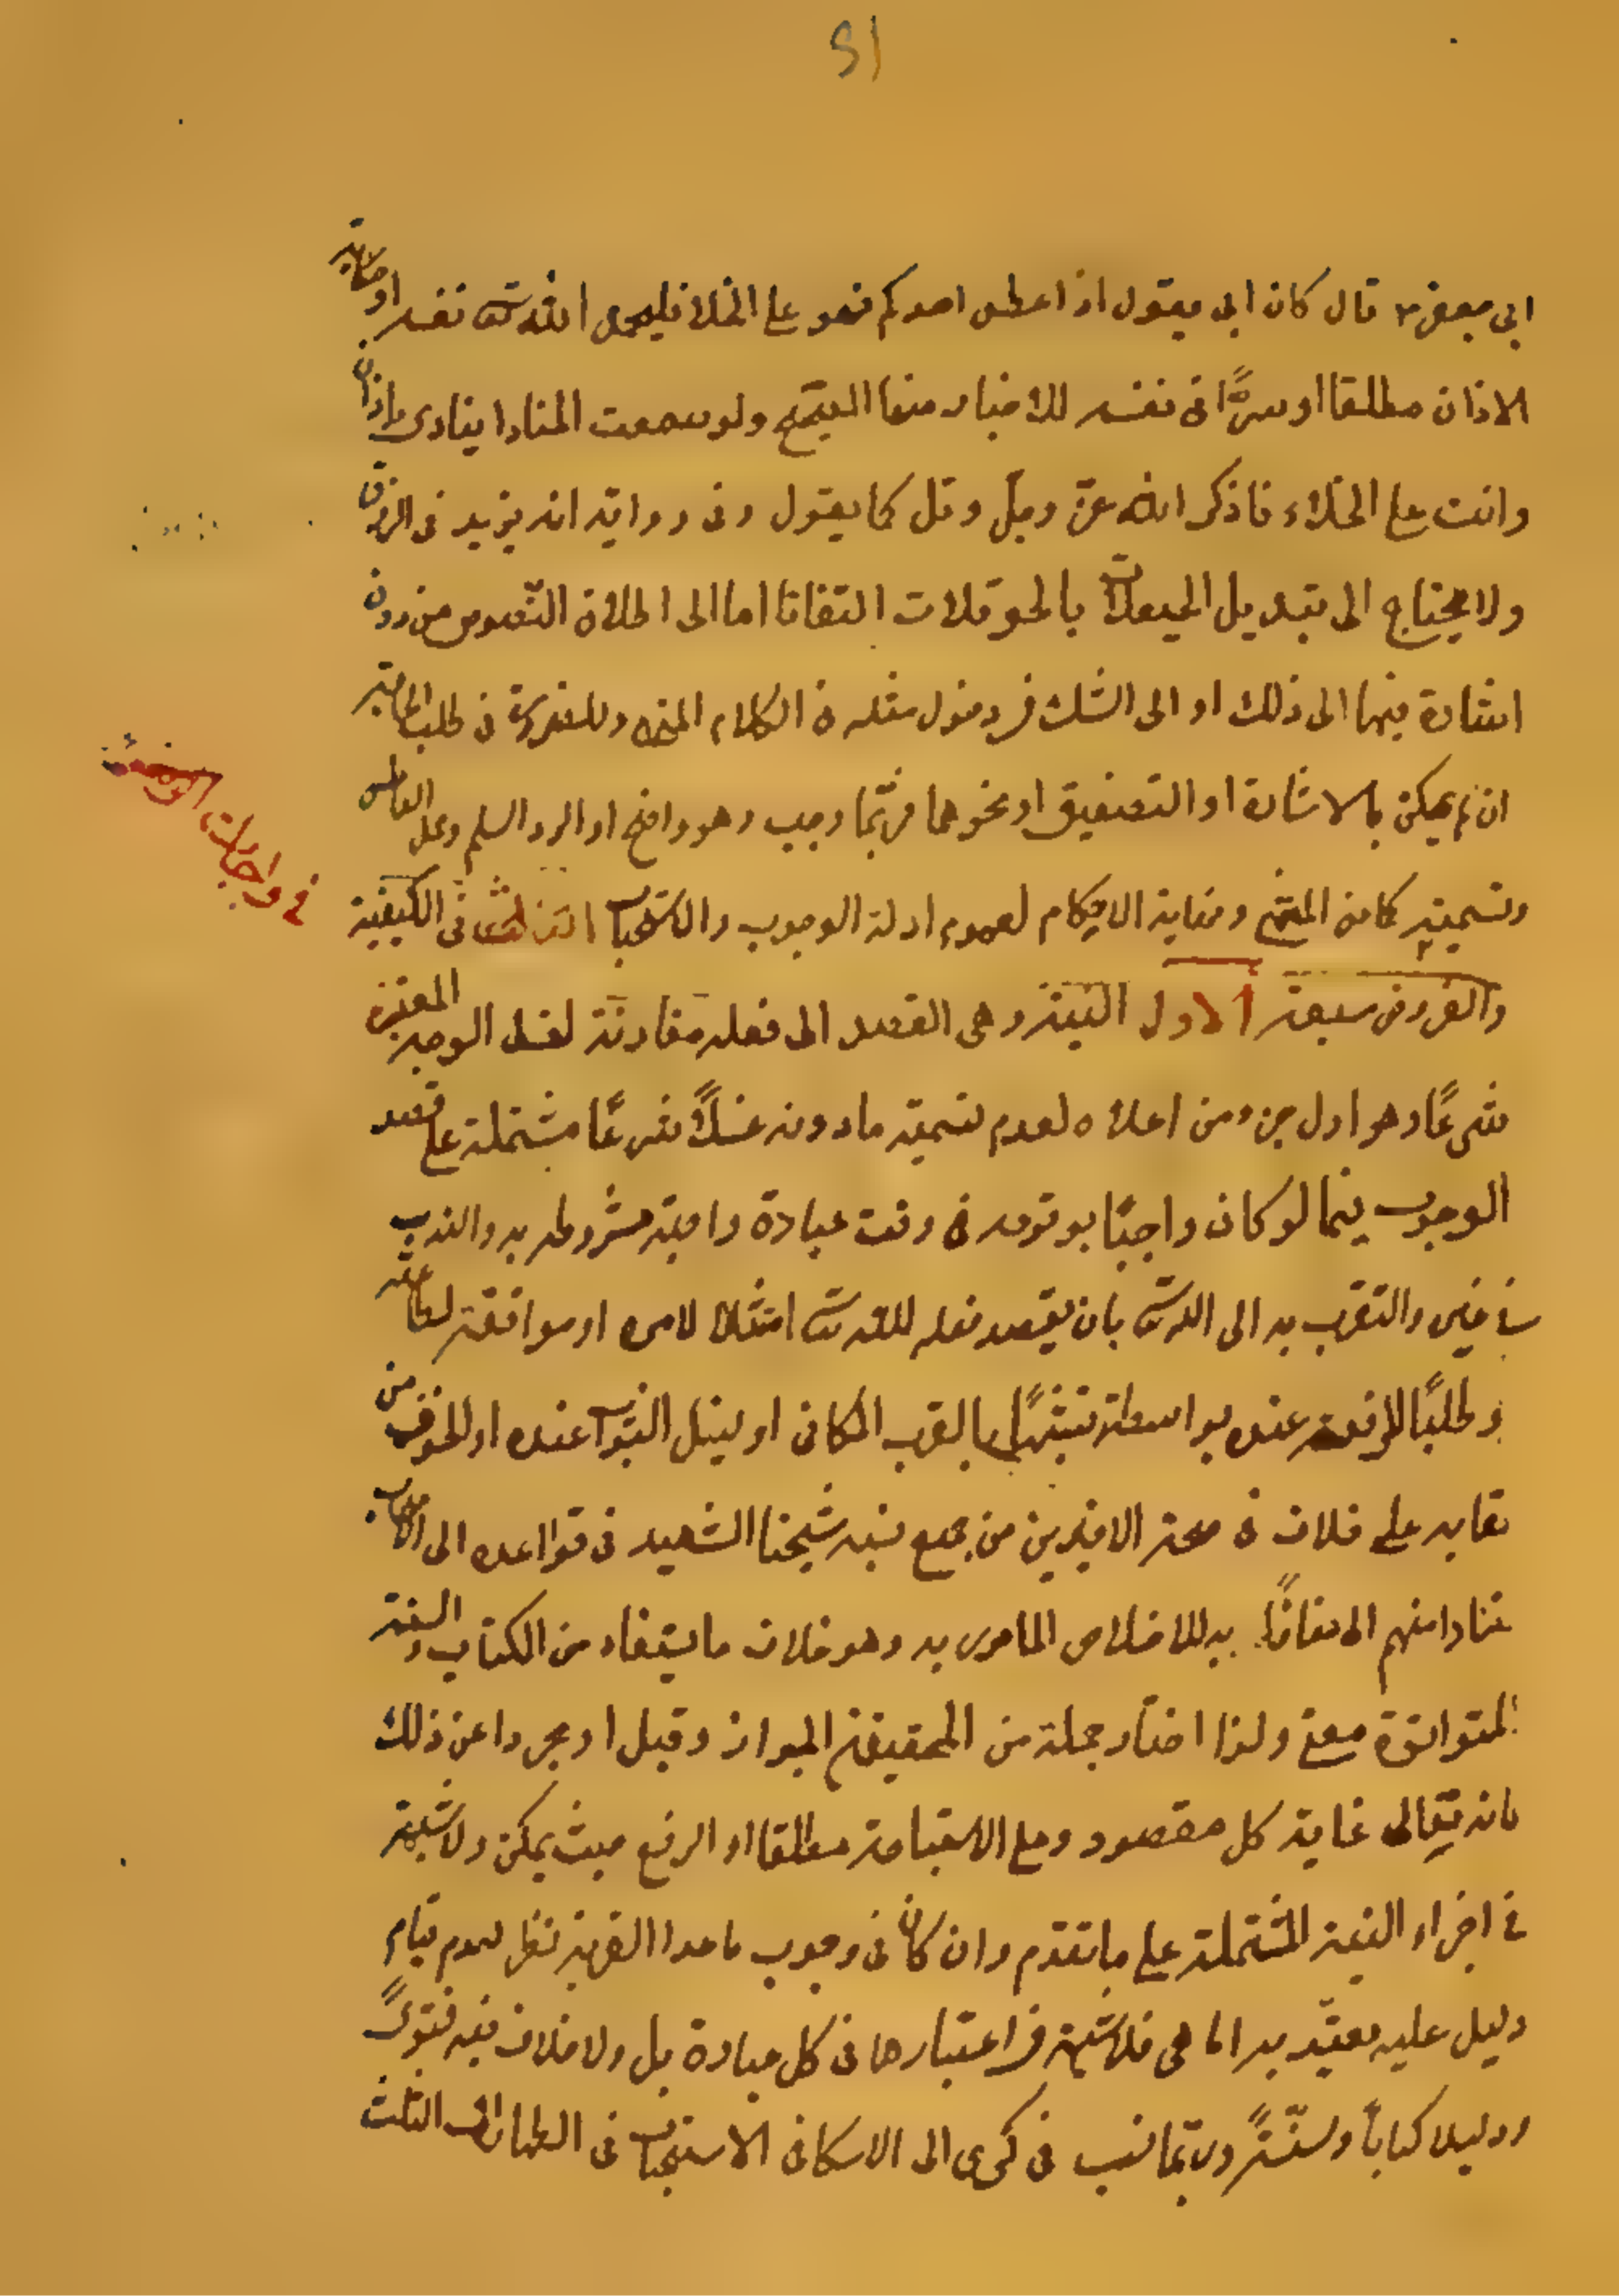 ابى جعفر ع قال كان ابى يقول اذا عطس احدكم فهو على الخلا فليحمد الله تعالى نفسه او حكاية
الاذان مطلقا او سرًّا فى نفسه للاخبار منها الصحيح ولو سمعت المنادا ينادى باذان
وانت على الخلاء فاذكر الله عزّ وجلّ وقل كما يقول وفى رواية انه يزيد فى الرزق
ولا يحتاج الى تبديل الحيعلات بالحوقلات التفاتا اما الى اطلاق النصوص من دون
اشارة فيهما الى ذلك او الى الشك فى دخول مثله فى الكلام المنهى وللضرورة فى طلب الحاجة
ان لم يمكن بالاشارة او التصفيق او نحوهما فربّما وجب وهو واضح او الرد السلم وحمد العاطس
وتسميته كما من المنتهى ونهاية الاحكام لعموم ادلة الوجوب والاستحباب الثالث فى الكيفية
والفروض سبعة الاول النية وهى القصد الى فعله مقارنة لغسل الوجه المعتبر
شرعًا وهو اول جزء من اعلاه لعدم تسمية ما دونه غسلًا شرعًا مشتملة على قصد
الوجوب فيما لو كان واجبًا بوقوعه فى وقت عبادة واجبة مشروطه به والندب
فى غيره والتقرب به الى الله تعالى بان يقصد فعله لله تعالى امتثالا لامره او موافقة لطاعته
وطلبًا للرفعة عنده بواسطة تشبيهًا بالقرب المكانى او لنيل الثواب عنده او للخوف من
عقابه على خلاف فى صحة الاخيرين من جمع نسبه شيخنا الشهيد فى قواعده الى الاصحاب
نظرا منهم الى منافات به للاخلاص المامور به وهو خلاف ما يستفاد من الكتاب والسنة
المتواترة معنى ولذا اختار جملة من المحققين الجواز وقيل او مجردا عن ذلك
فانه تعالى غاية كل مقصود ومع الاستباحة مطلقا او الرفع حيث يمكن ولا شبهة
فى اجزاء النية المشتملة على ما تقدم وان كان فى وجوب ما عدا القربة نظر لعدم قيام
دليل عليه يعتدّ به اما هى فلا شبهة فى اعتبارها فى كل عبادة بل ولا خلاف فيه فتوىً
ودليلا كتاباً وسنّةً وربّما نسب فى كرى الى الاسكافى الاستحباب فى الطهارات الثلث
فى واجبات الوضوء